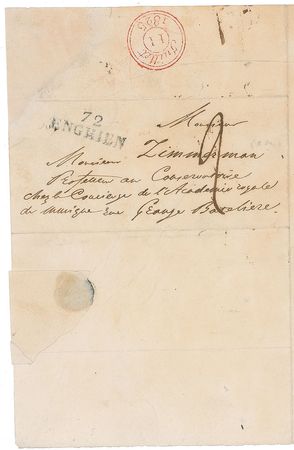 Juillet
11
1825
72
ENGHIEN
Monsieur
2
Monsieur Zimmerman
Professeur au Conservatoire
chez le Concierge de l'Academie royale
de musique rue Grange Bateliere.